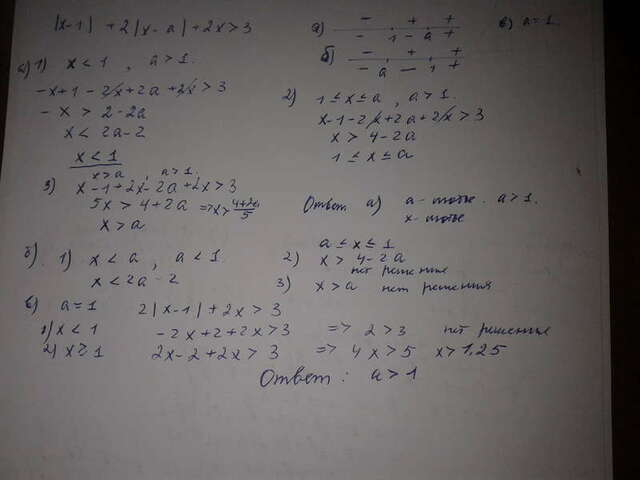 |x-1| + 2|x-a| + 2x > 3
а) - + +
- 1 - a +
б) - + +
- a - 1 +
в) a = 1.
а) 1) x < 1 , a > 1.
-x+1-2x+2a+2x > 3
-x > 2-2a
x < 2a-2
x < 1
2) 1 ≤ x ≤ a , a > 1.
x-1-2x+2a+2x > 3
x > 4-2a
1 ≤ x ≤ a
3) x > a, a > 1,
x-1+2x-2a+2x > 3
5x > 4+2a => x > (4+2a)/5
x > a
Ответ а) a - любое . a > 1.
x - любое
б) 1) x < a , a < 1.
x < 2a-2
a ≤ x ≤ 1
2) x > 4-2a
нет решения
3) x > a нет решения
в) a = 1 2|x-1| + 2x > 3
1) x < 1 -2x+2+2x > 3 => 2 > 3 нет решения
2) x ≥ 1 2x-2+2x > 3 => 4x > 5 x > 1,25
Ответ : a > 1